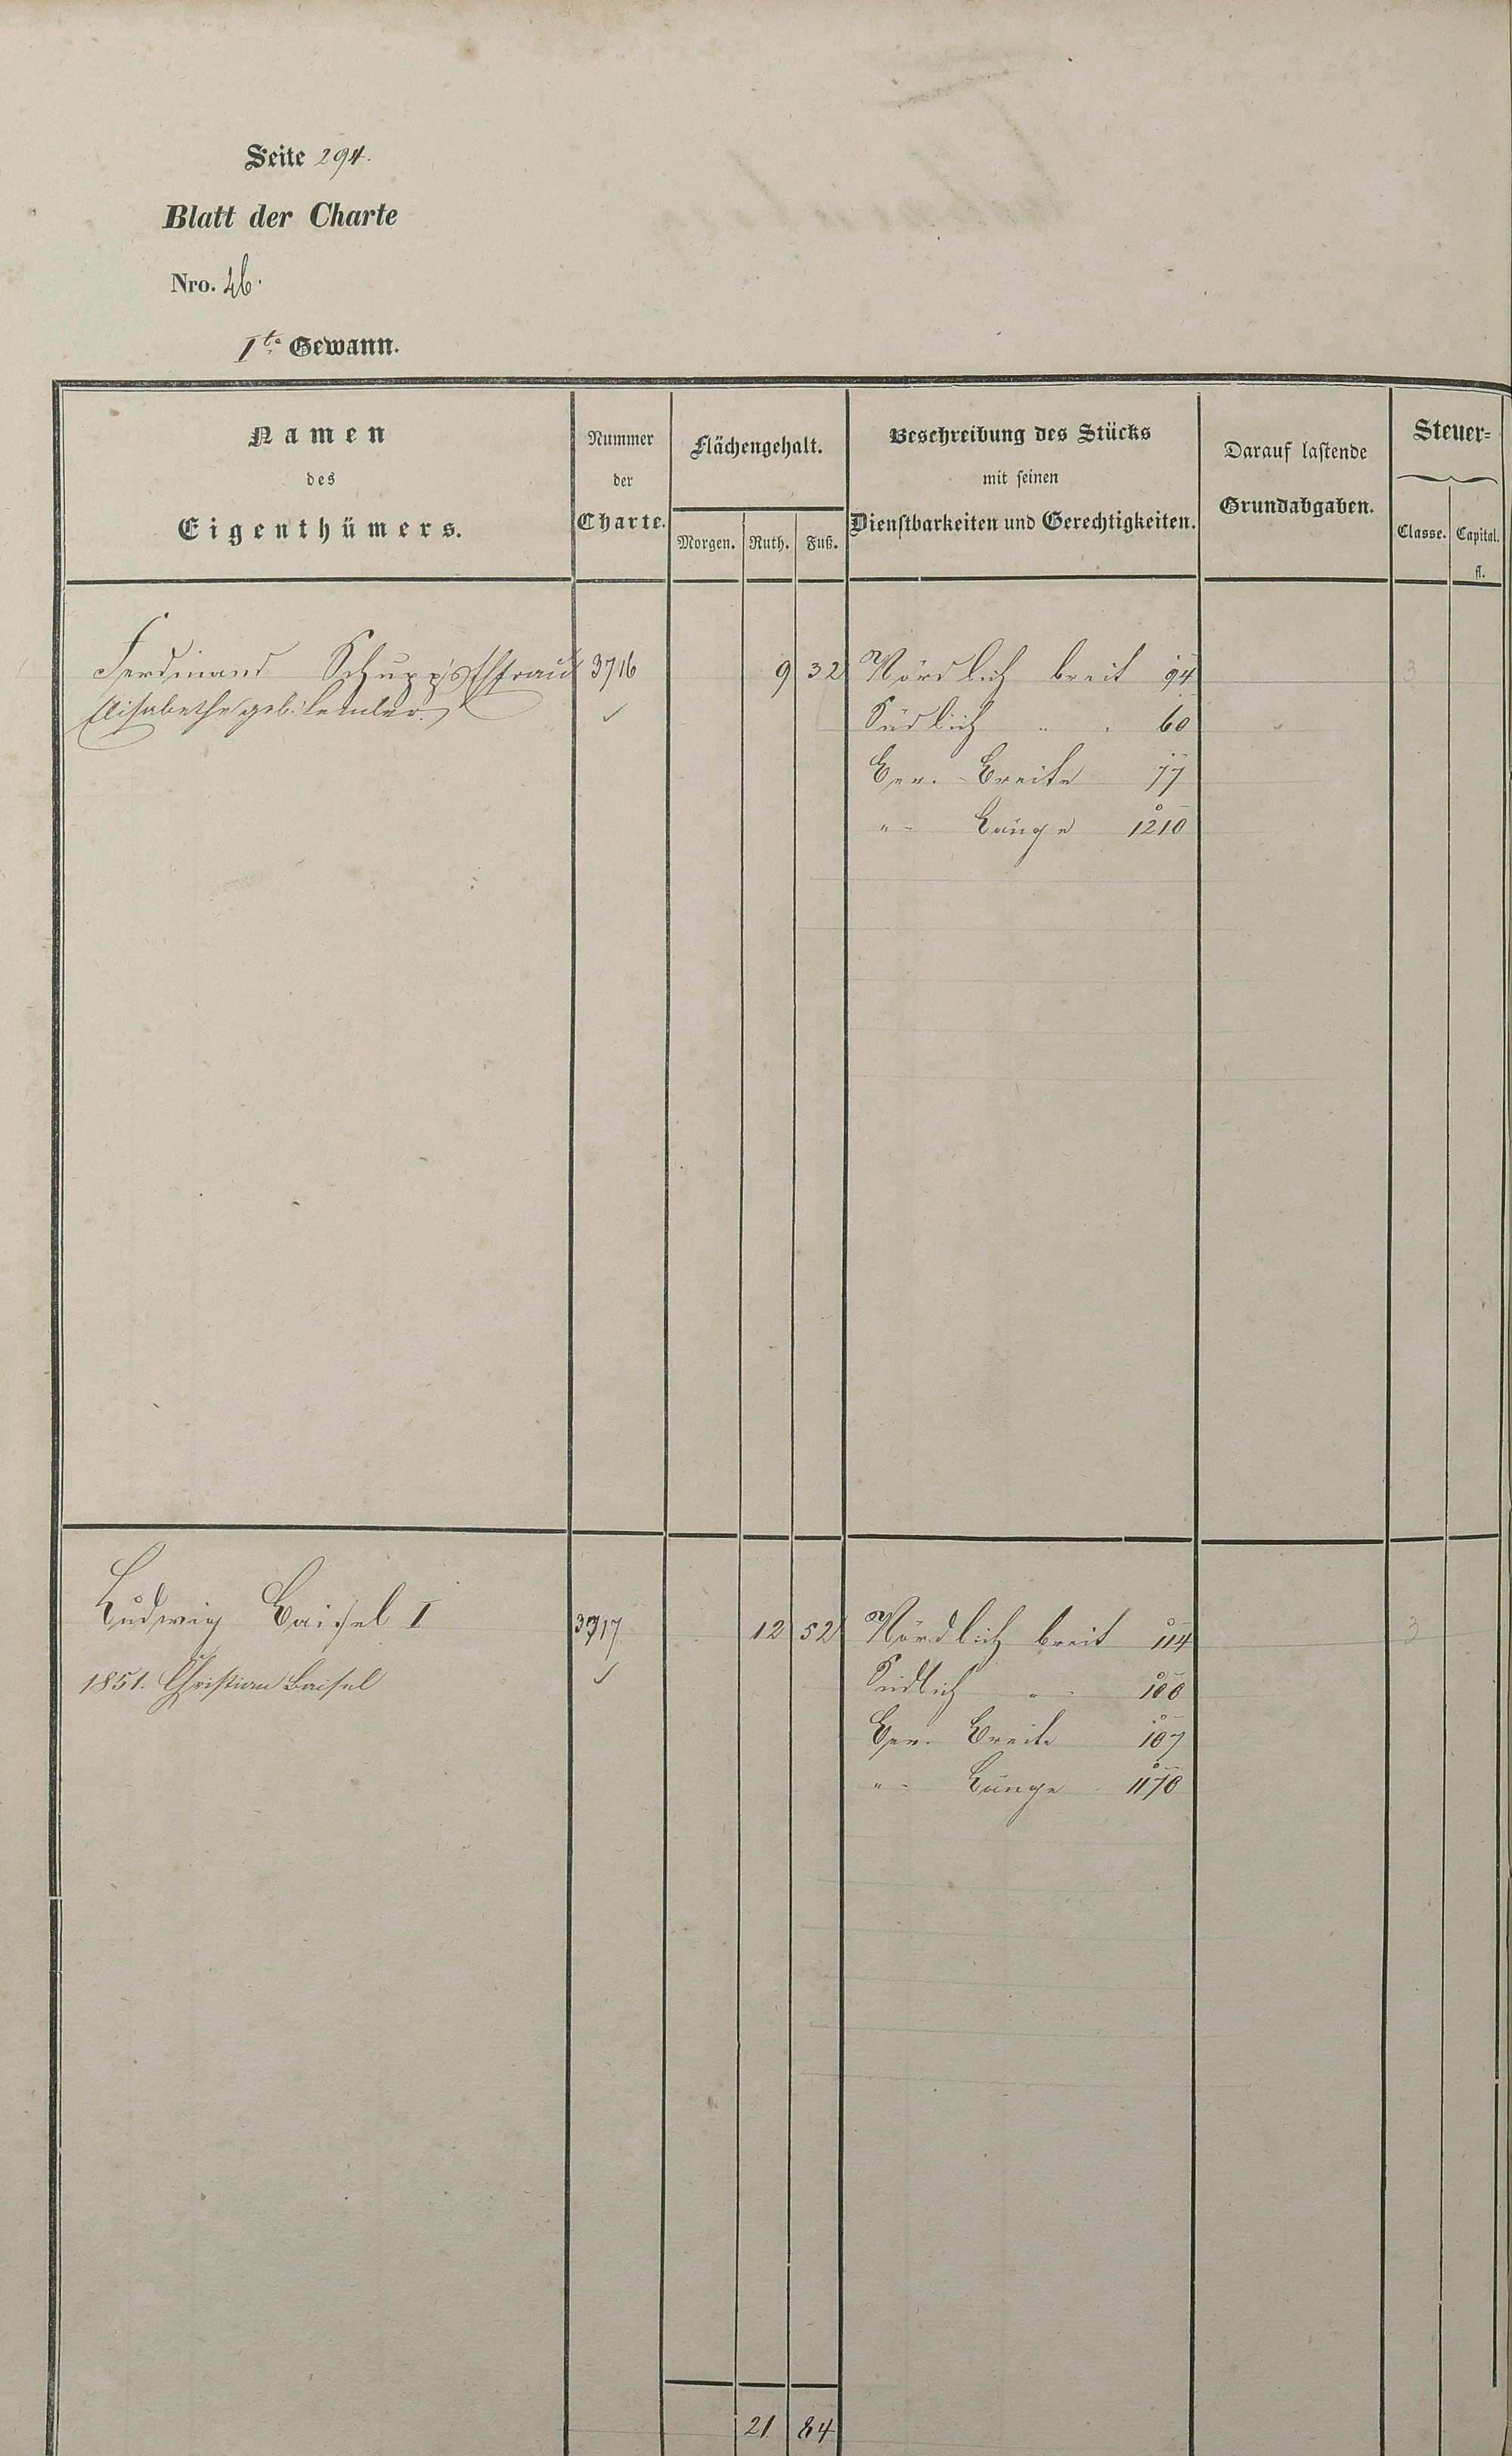 Seite 294.
Blatt der Charte
Nro. 46.
1te Gewann.
Namen
des
Eigenthümers.
Nummer
der
Charte.
Flächengehalt.
Morgen. Ruth. Fuß.
Beschreibung des Stücks
mit seinen
Dienstbarkeiten und Gerechtigkeiten.
Darauf lastende
Grundabgaben.
Steuer-
Classe. Capital.
fl.
Ferdinand Schupp's Ehfrau 3716 9 32 Nördlich breit 94 3
Elisabethe geb. Lemler. Südlich " " 60
Ger. Breite 77
" Länge 1210
Ludwig Baisel I 3717 12 52 Nördlich breit 114 3
1851. Christian Baisel Südlich " 100
Ger. Breite 107
" Länge 1170
21 84